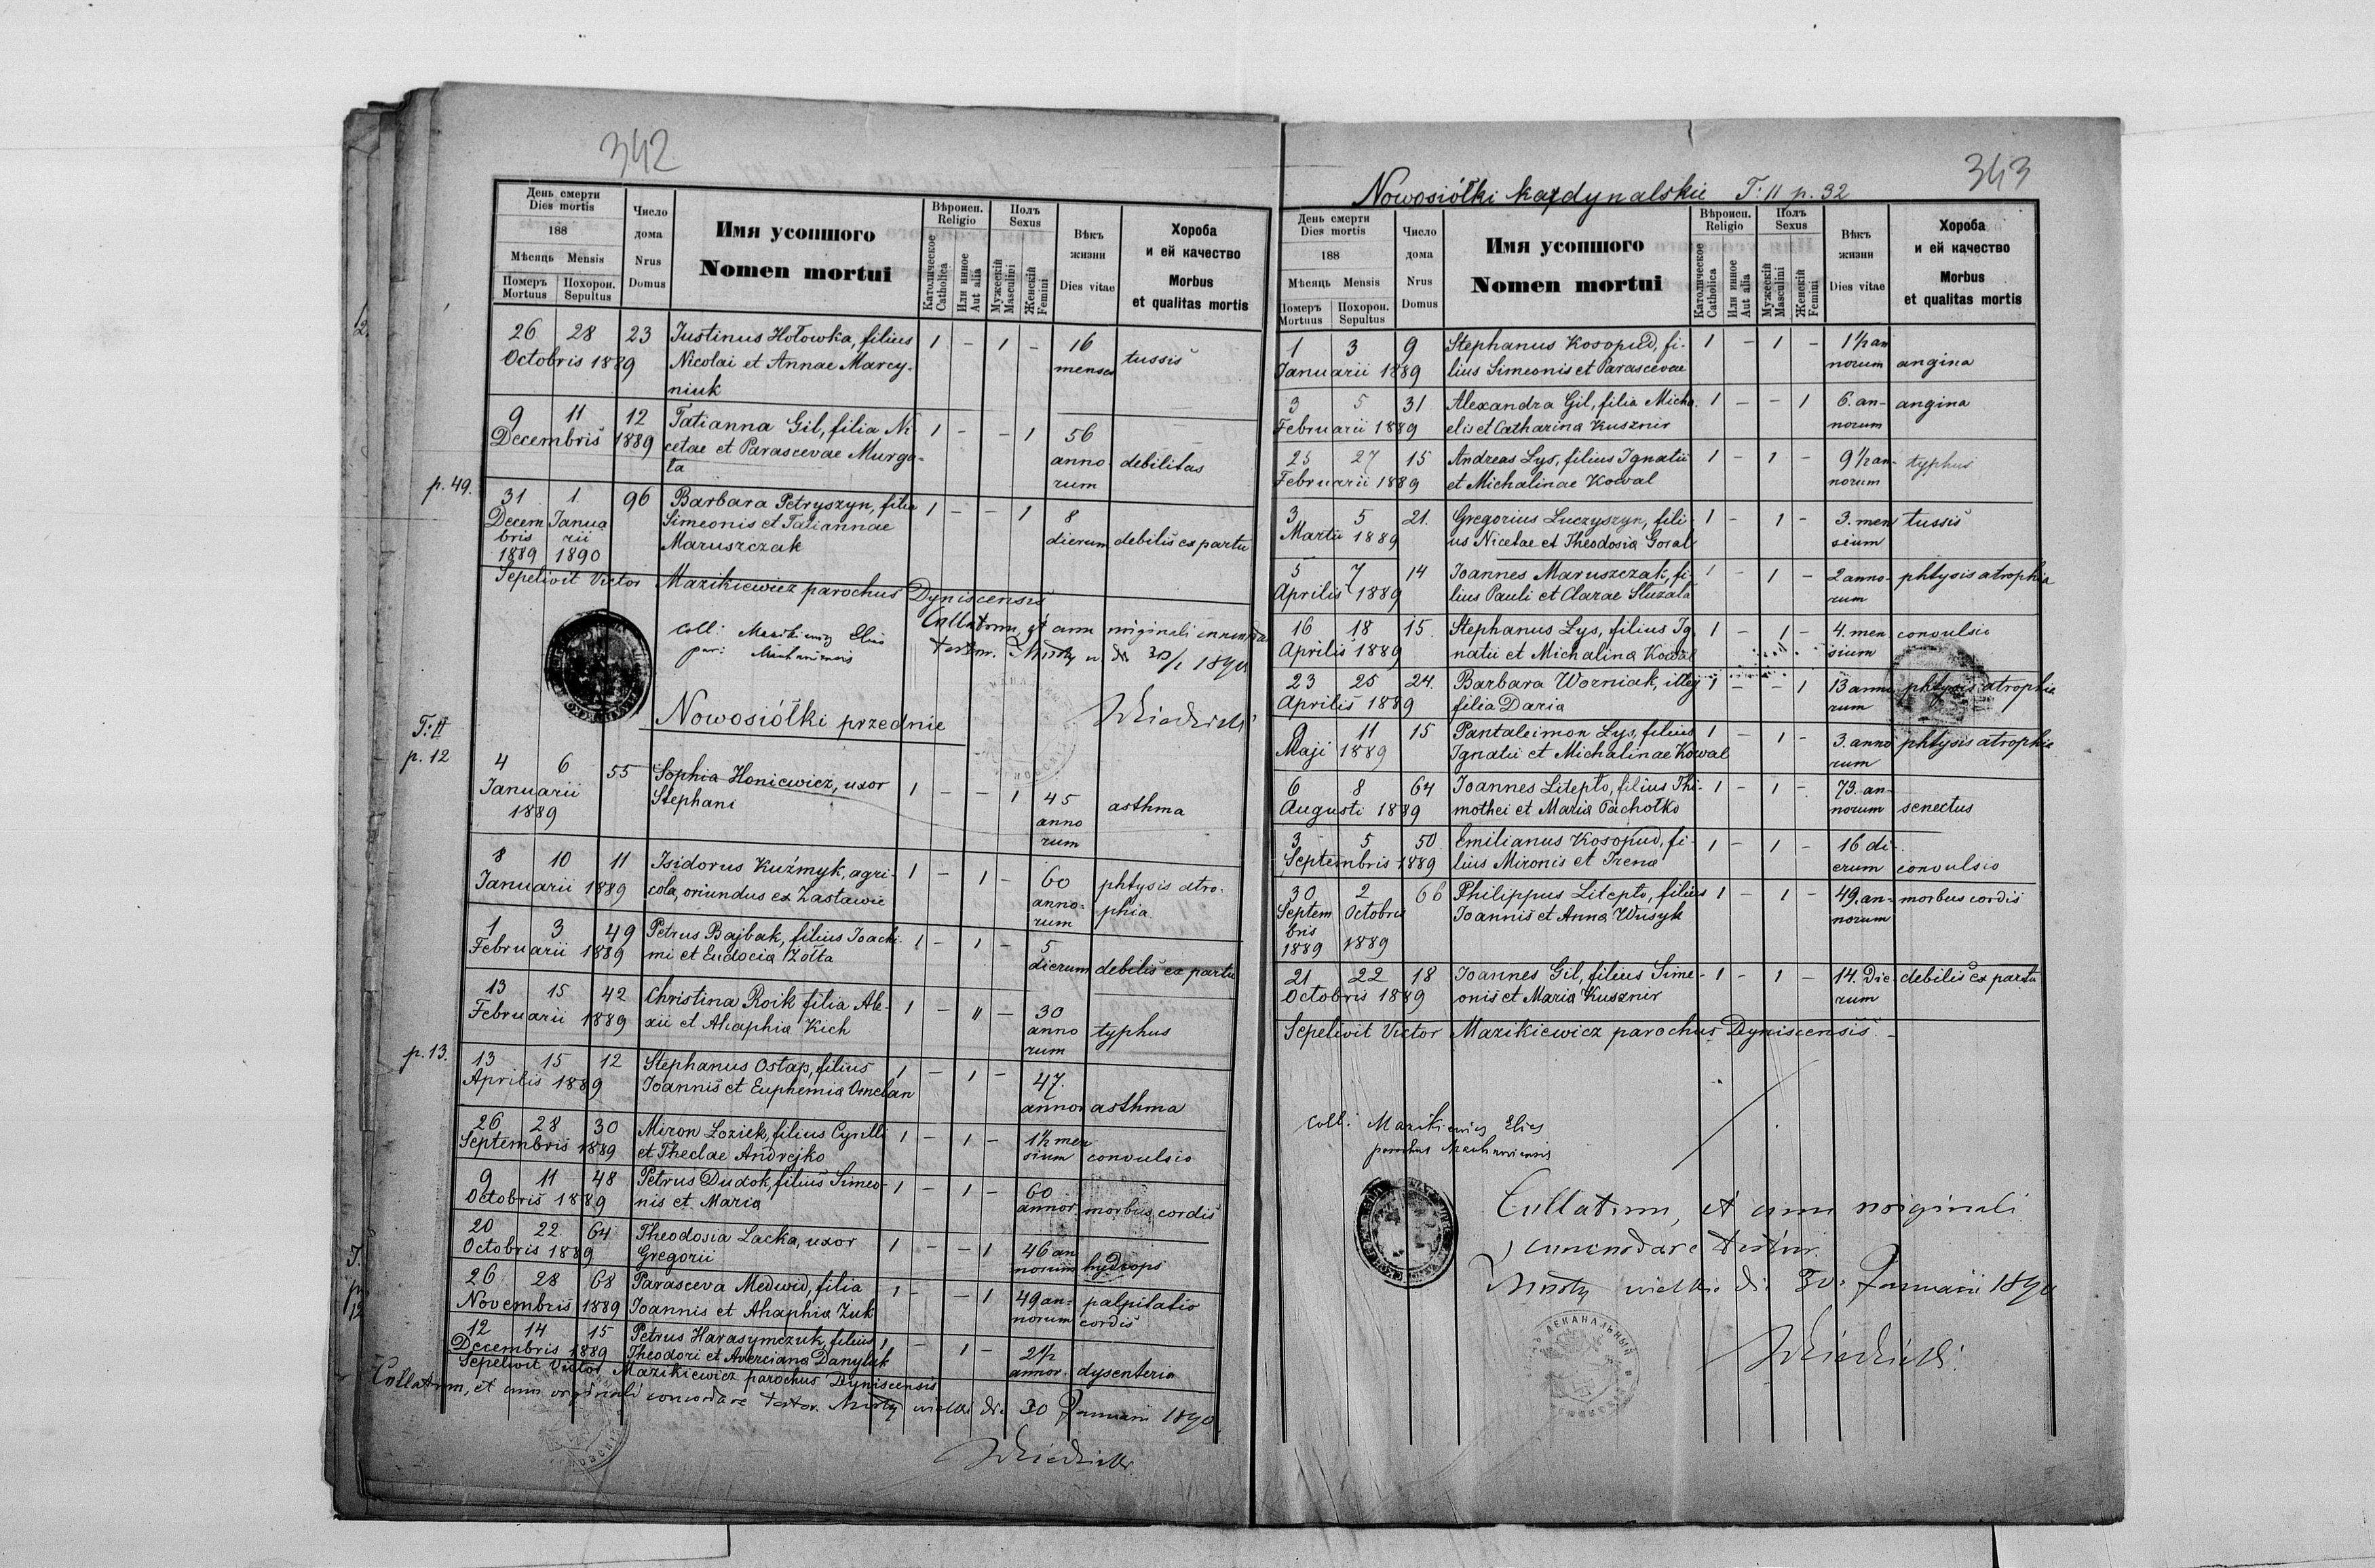 342
День смерти
Dies mortis
188
Мѣсяць Mensis
Померъ Mortuus
Похорон. Sepultus
Число дома
Nrus Domus
Имя усопшого
Nomen mortui
Вѣроисп.
Religio
Католическое Catholica
Или инное Aut alia
Полъ
Sexus
Мужескій Masculini
Женскій Femini
Вѣкъ жизни
Dies vitae
Хороба
и ей качество
Morbus
et qualitas mortis
26 28 23 Iustinus Hołowka, filius 1 – 1 – 16
Octobris 1889 Nicolai et Annae Marcy- menses tussis
niuk
9 11 12 Tatianna Gil, filia Ni- 1 – – 1 56
Decembris 1889 cetae et Parascevae Murga- anno- debilitas
ta rum
p. 49.
31 1 96 Barbara Petryszyn, filia 1 – – 1 8
Decem Janua Simeonis et Tatiannae dierum debilis ex partu
bris rii Maruszczak
1889 1890
Sepelivit Victor Mazikiewicz parochus Dyniscensis
Coll: Mazikiewicz Elias
par:
Collatum, et cum originali concordare
testor. 30/1 1890.
Nowosiółki przednie
T. II
p. 12
4 6 55 Sophia Honiewicz, uxor 1 – – 1 45
Januarii Stephani anno asthma
1889 rum
8 10 11 Isidorus Kuźmyk, agri- 1 – 1 – 60 phtysis atro-
Januarii 1889 cola, oriundus ex Zastawie anno- phia
rum
1 3 49 Petrus Bajbak, filius Joachi- 1 – 1 – 5
Februarii 1889 mi et Eudocia Żółta dierum debilis ex partu
13 15 42 Christina Roik filia Ale- 1 – 11 – 30
Februarii 1889 xii et Ahaphia Kich anno typhus
rum
p. 13.
13 15 12 Stephanus Ostap, filius 1 – 1 – 47.
Aprilis 1889 Joannis et Euphemia Omelan annor asthma
26 28 30 Miron Loziek, filius Cyrilli 1 – 1 – 1½ men
Septembris 1889 et Theclae Andrejko sium convulsio
9 11 48 Petrus Dudok, filius Simeo- 1 – 1 – 60
Octobris 1889 nis et Maria annor. morbus cordis
20 22 64 Theodosia Lacka, uxor 1 – – 1 46 an
Octobris 1889 Gregorii norum hydrops
26 28 68 Parasceva Medwid, filia 1 – – 1 49 an- palpitatio
Novembris 1889 Joannis et Ahaphia Żuk norum cordis
12 14 15 Petrus Harasymczuk, filius 1 – 1 – 2½
Decembris 1889 Theodori et Danyluk annor. dysenteria
Sepelivit Victor Mazikiewicz parochus Dyniscensis
Collatum, et cum originali concordare testor. Mosty wielkie die 30 Januarii 1890
343
Nowosiółki kardynalskie T: II p. 32
День смерти
Dies mortis
188
Мѣсяць Mensis
Померъ Mortuus
Похорон. Sepultus
Число дома
Nrus Domus
Имя усопшого
Nomen mortui
Вѣроисп.
Religio
Католическое Catholica
Или инное Aut alia
Полъ
Sexus
Мужескій Masculini
Женскій Femini
Вѣкъ жизни
Dies vitae
Хороба
и ей качество
Morbus
et qualitas mortis
1 3 9 Stephanus Kosopud, fi- 1 – 1 – 1½ an
Januarii 1889 lius Simeonis et Parascevae norum angina
3 5 31 Alexandra Gil, filia Micha- 1 – – 1 6. an- angina
Februarii 1889 elis et Catharina Kusznir norum
25 27 15 Andreas Lys, filius Ignatii 1 – 1 – 9½ an- typhus
Februarii 1889 et Michalinae Kowal norum
3 5 21. Gregorius Luczyszyn, fili- 1 – 1 – 3. men tussis
Martii 1889 us Nicetae et Theodosia Goral sium
5 7 14 Joannes Maruszczak, fi- 1 – 1 – 2 anno- phtysis atrophia
Aprilis 1889 lius Pauli et Clarae Sluzala rum
16 18 15. Stephanus Lys, filius Ig- 1 – 1 – 4. men convulsio
Aprilis 1889 natii et Michalina Kowal sium
23 25 24. Barbara Worniak, illeg 1 – – 1 13 anno phtysis atrophia
Aprilis 1889 filia Daria rum
9 11 15 Pantaleimon Lys, filius 1 – 1 – 3. anno phtysis atrophia
Maji 1889 Ignatii et Michalinae Kowal rum
6 8 64 Joannes Litepło, filius Thi- 1 – 1 – 73. an-
Augusti 1889 mothei et Maria Pachołko norum senectus
3 5 50 Emilianus Kosopud, fi- 1 – 1 – 16 di-
Septembris 1889 lius Mironis et Irena erum convulsio
30 2 66 Philippus Litepło, filius 1 – 1 – 49. an- morbus cordis
Septem Octobris Joannis et Anna Wusyk norum
bris
1889 1889
21 22 18 Joannes Gil, filius Sime- 1 – 1 – 14. die- debilis ex partu
Octobris 1889 onis et Maria Kusznir rum
Sepelivit Victor Mazikiewicz parochus Dyniscensis. –
Coll: Mazikiewicz Elias
parochus
Collatum, et cum originali
concordare testor.
Mosty wielkie die 30. Januarii 1890